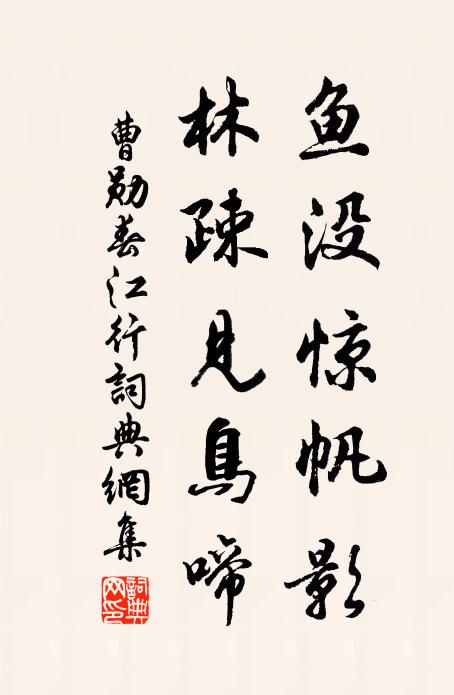 鱼没惊帆影
林疎见鳥啼
曹勋春江行詞典網集
詞典网印